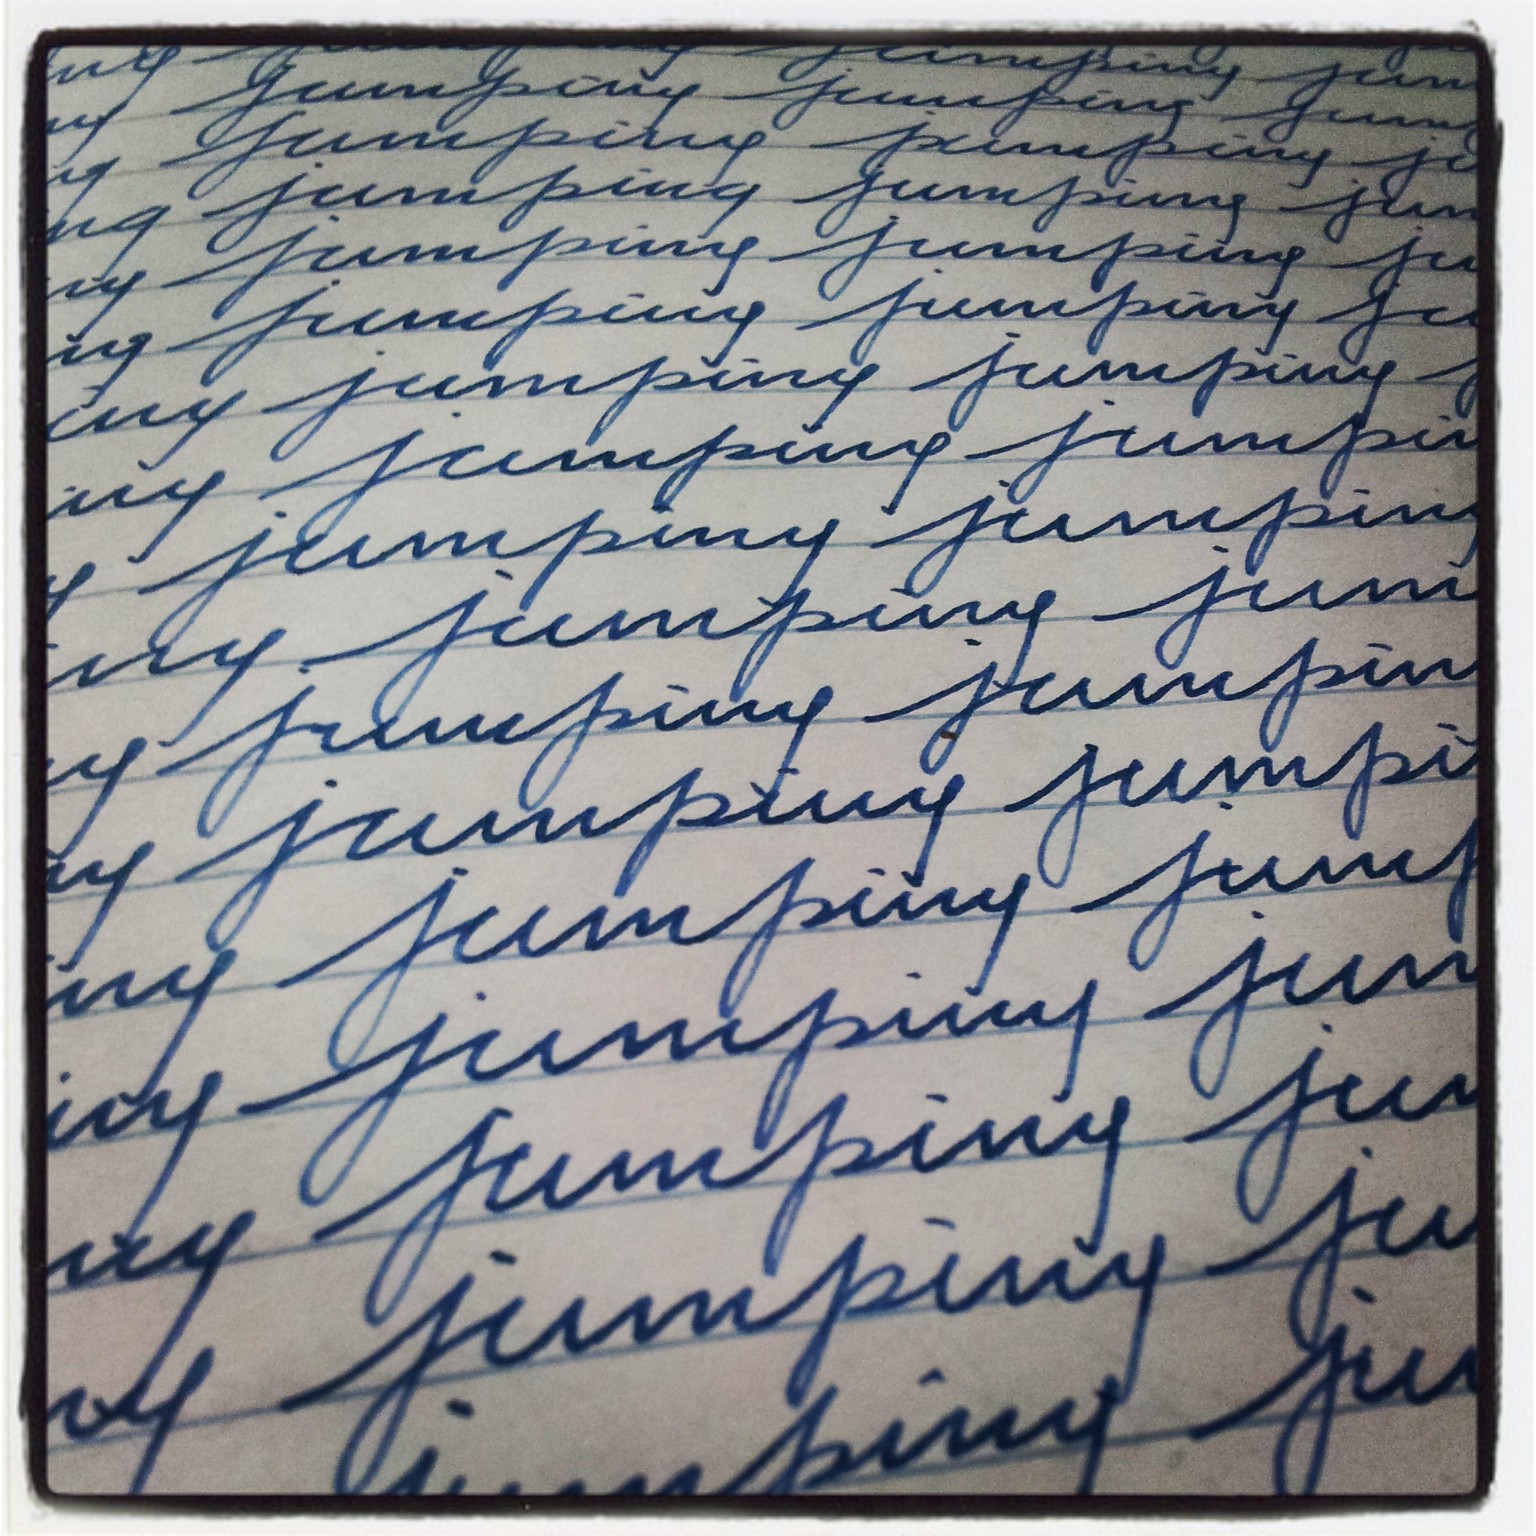 ing jumping jumping jum
ng jumping jumping jum
ng jumping jumping ju
ng jumping jumping jum
ng jumping jumping ju
ing jumping jumping ju
ing jumping jumping j
ing jumping jumpin
g jumping jumping
ing jumping jum
ng jumping jumpin
ng jumping jumpi
ing jumping jump
ing jumping jum
ng jumping jun
ng jumping ju
jumping ju